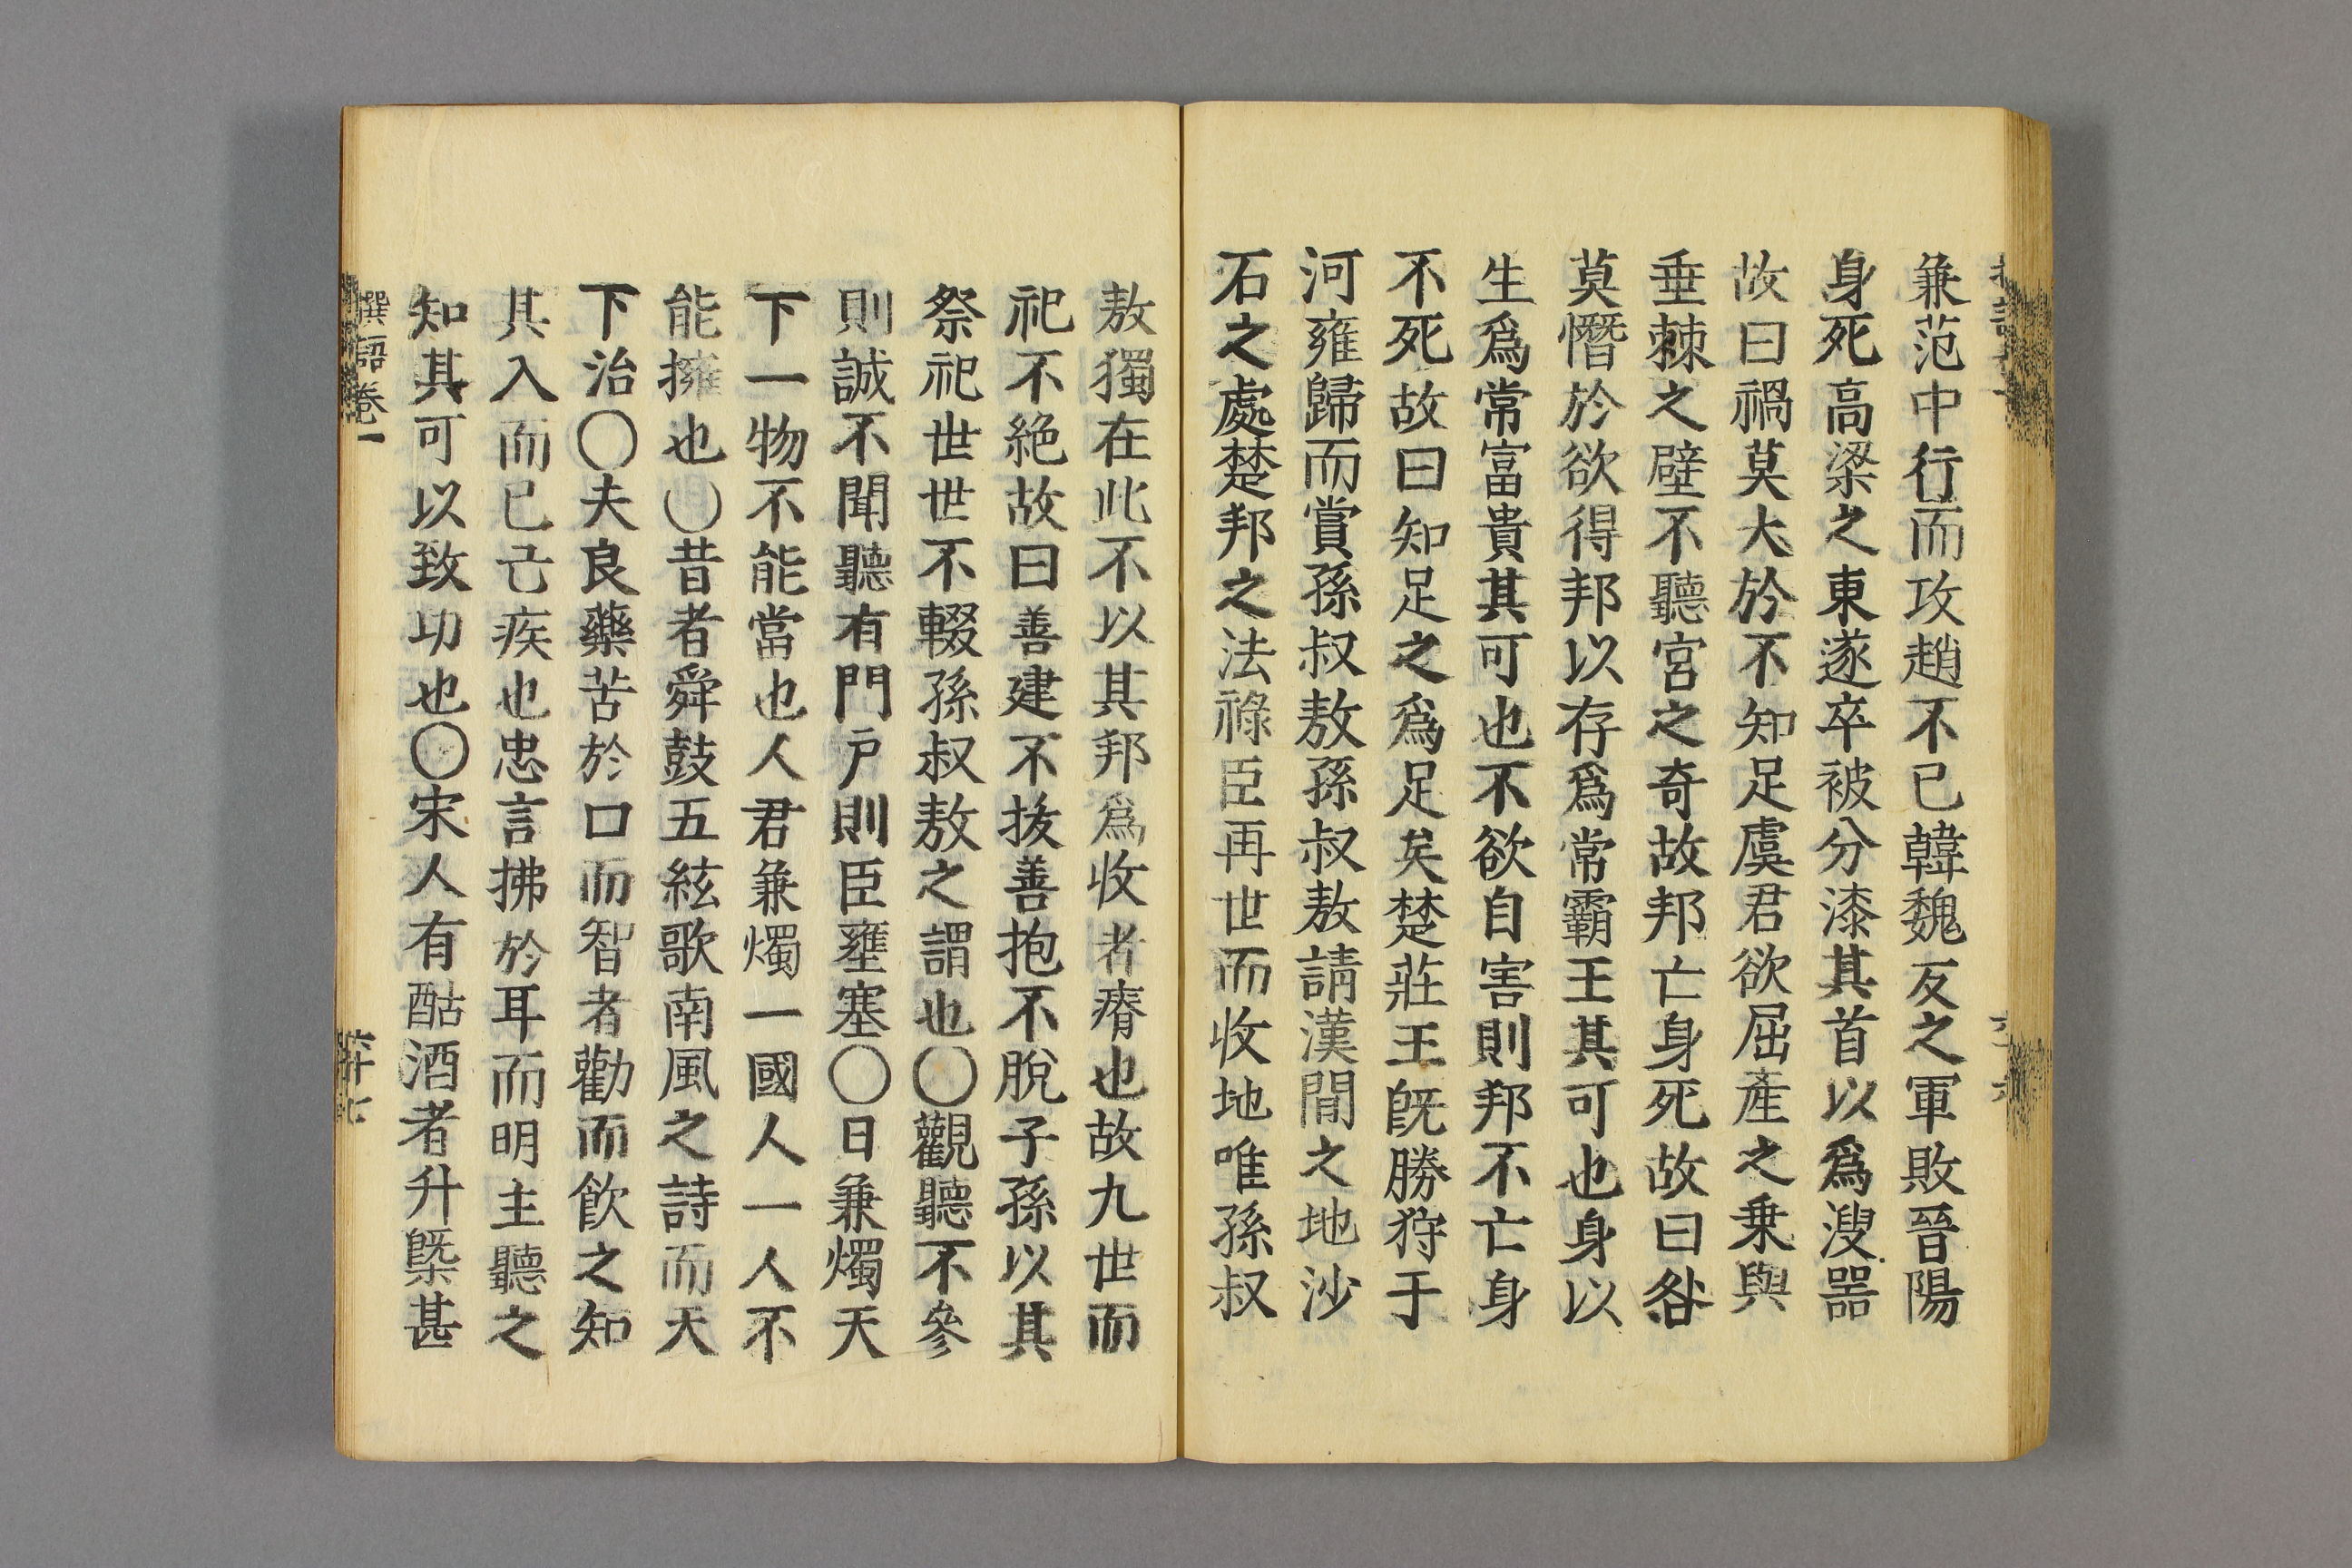 兼范中行而攻趙不已韓魏反之軍敗晉陽
身死高梁之東遂卒被分漆其首以爲溲器
故曰禍莫大於不知足虞君欲屈產之乗與
垂棘之壁不聽宮之奇故邦亡身死故曰咎
莫憯於欲得邦以存爲常霸王其可也身以
生爲常富貴其可也不欲自害則邦不亡身
不死故曰知足之爲足矣楚莊王旣勝狩于
河雍歸而賞孫叔敖孫叔敖請漢間之地沙
石之處楚邦之法祿臣再世而收地唯孫叔
敖獨在此不以其邦爲收者瘠也故九世而
祀不絶故曰善建不拔善抱不脫子孫以其
祭祀世世不輟孫叔敖之謂也〇觀聽不參
則誠不聞聽有門戶則臣壅塞〇日兼燭天
下一物不能當也人君兼燭一國人一人不
能擁也〇昔者舜鼓五絃歌南風之詩而天
下治〇夫良藥苦於口而智者勸而飮之知
其入而已己疾也忠言拂於耳而明主聽之
知其可以致功也〇宋人有酤酒者升槩甚
撰語卷一